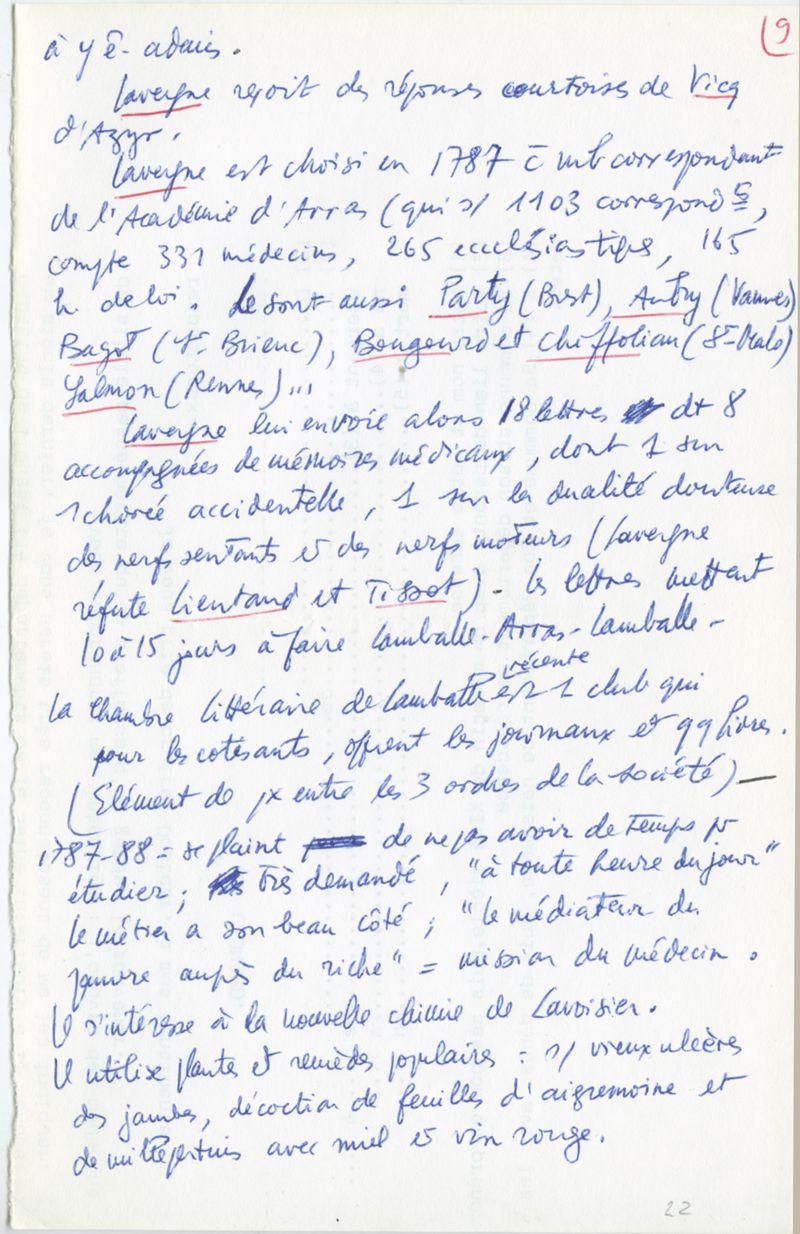 9
à y ê. admis.
Lavergne reçoit des réponses courtoises de Vicq
d'Azyr.
Lavergne est choisi en 1787 c̄ mb correspondant
de l'Académie d'Arras (qui s/ 1103 correspond<sup>ts</sup>,
compte 331 médecins, 265 ecclésiastiques, 165
h. de loi. Le sont aussi Party (Brest), Aubry (Vannes)
Bagot (St-Brieuc), Bougourd et Chiffoliau (St-Malo)
Salmon (Rennes)...
Lavergne lui envoie alors 18 lettres dt 8
accompagnées de mémoires médicaux, dont 1 sur
1 chorée accidentelle, 1 sur la dualité douteuse
des nerfs sentants et des nerfs moteurs (Lavergne
réfute Lieutaud et Tissot). Les lettres mettent
10 à 15 jours à faire Lamballe-Arras-Lamballe-
La Chambre littéraire de Lamballe récente est 1 club qui
pour les cotisants, offrent les journaux et qq livres.
(Elément de jx entre les 3 ordres de la société) —
1787-88 = se plaint de ne pas avoir de temps pr
étudier; Très demandé, "à toute heure du jour"
le métier a son beau côté; "le médiateur du
pauvre auprès du riche" = mission du médecin.
Il s'intéresse à la nouvelle chimie de Lavoisier.
Il utilise plantes et remèdes populaires = s/ vieux ulcères
des jambes, décoction de feuilles d'aigremoine et
de millepertuis avec miel et vin rouge.
22